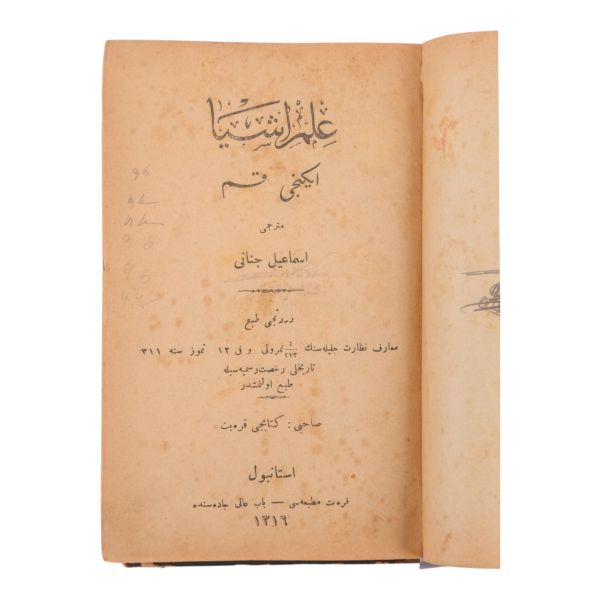 علم اشيا
ايكنجى قسم
مترجمى
اسماعيل جنانى
دردنجى طبع
معارف نظارت جليله‌سنك ٤/٢٧٣ نمرولى و فى ١٢ تموز سنه ٣١١
تاريخلى رخصت رسميه‌سيله
طبع اولنمشدر
صاحبى : كتابجى قره‌بت
استانبول
قره‌بت مطبعه‌سى — باب عالى جاده‌سنده
١٣١٦
36